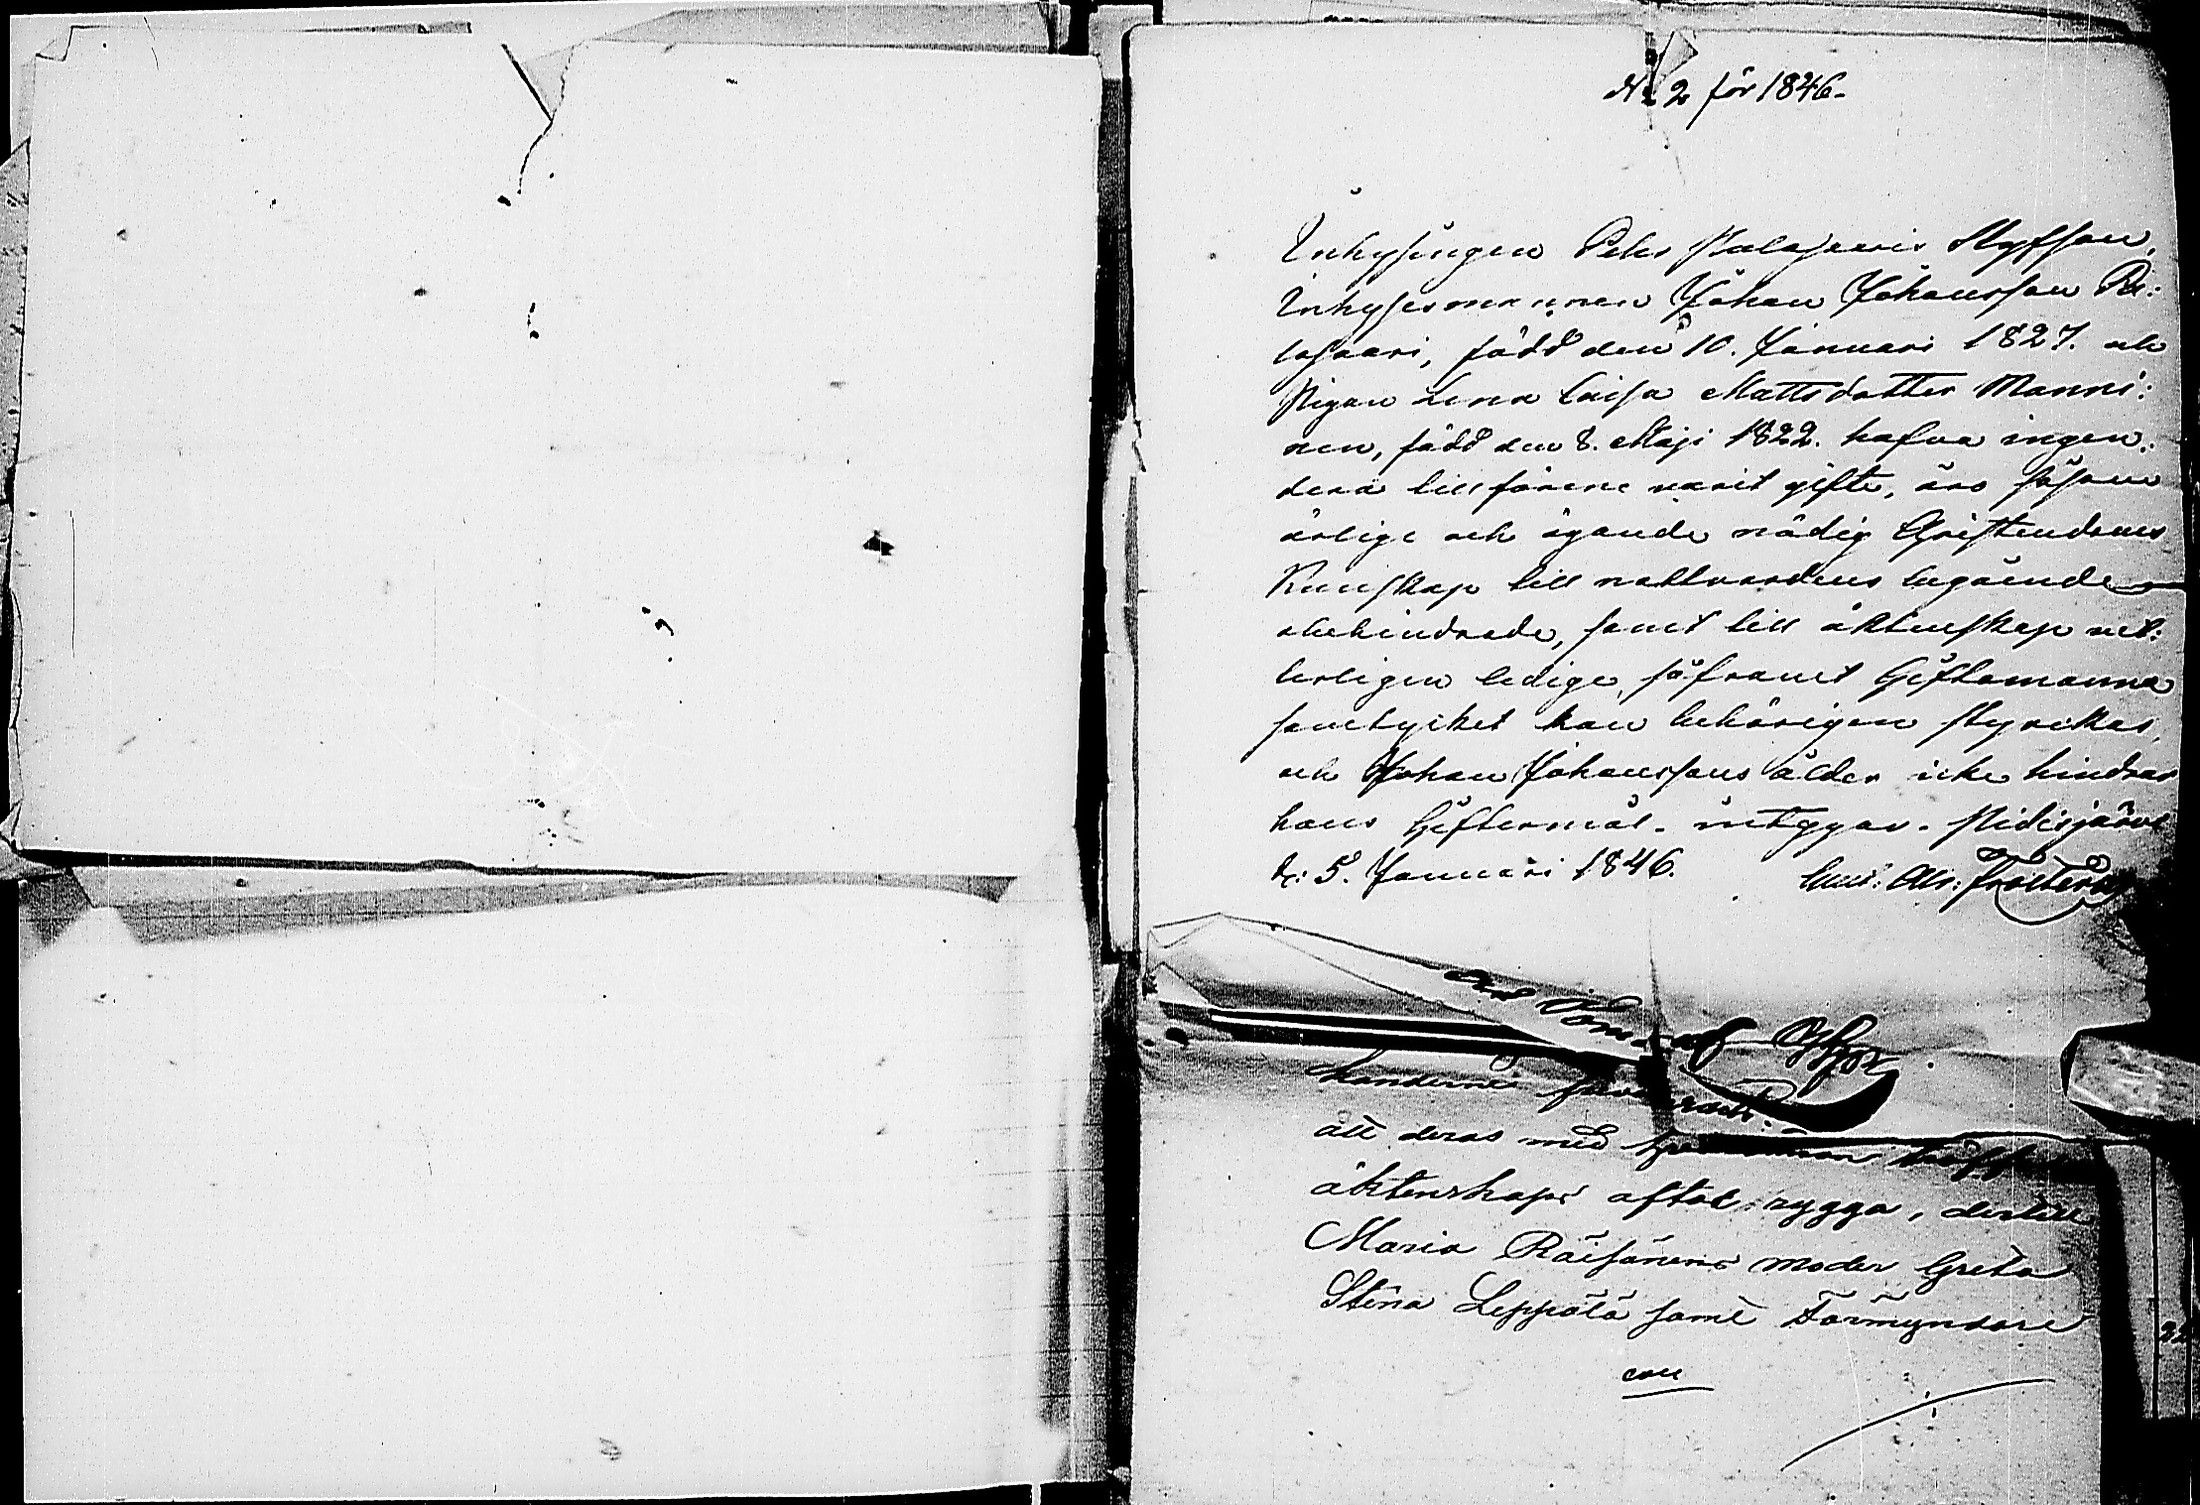 N: 2 för 1846.
Inhysingen Pehr Palosaaris Styfson,
Inhysesmannen Johan Johansson Pa:
losaari, född den 10. Januari 1827. och
Pigan Lena Caisa Mattsdotter Manni:
nen, född den 8. Maji 1822. hafva ingen:
dera tillförene varit gifte, äro såsom
ärlige och ägande nödig Christendoms
Kunskap till nattvardens begående
obehindrade, samt till äktenskap vet:
terligen ledige, såframt Giftomanna
samtycket kan behörigen styrckas,
och Johan Johanssons ålder icke hindrar
hans Giftermål. intygar. Pidisjärvi
d: 5. Januari 1846.
af
att deras med
äktenskaps aftal rygga, dertill
Maria Räisänens moder Greta
Stina Leppälä samt Förmyndare